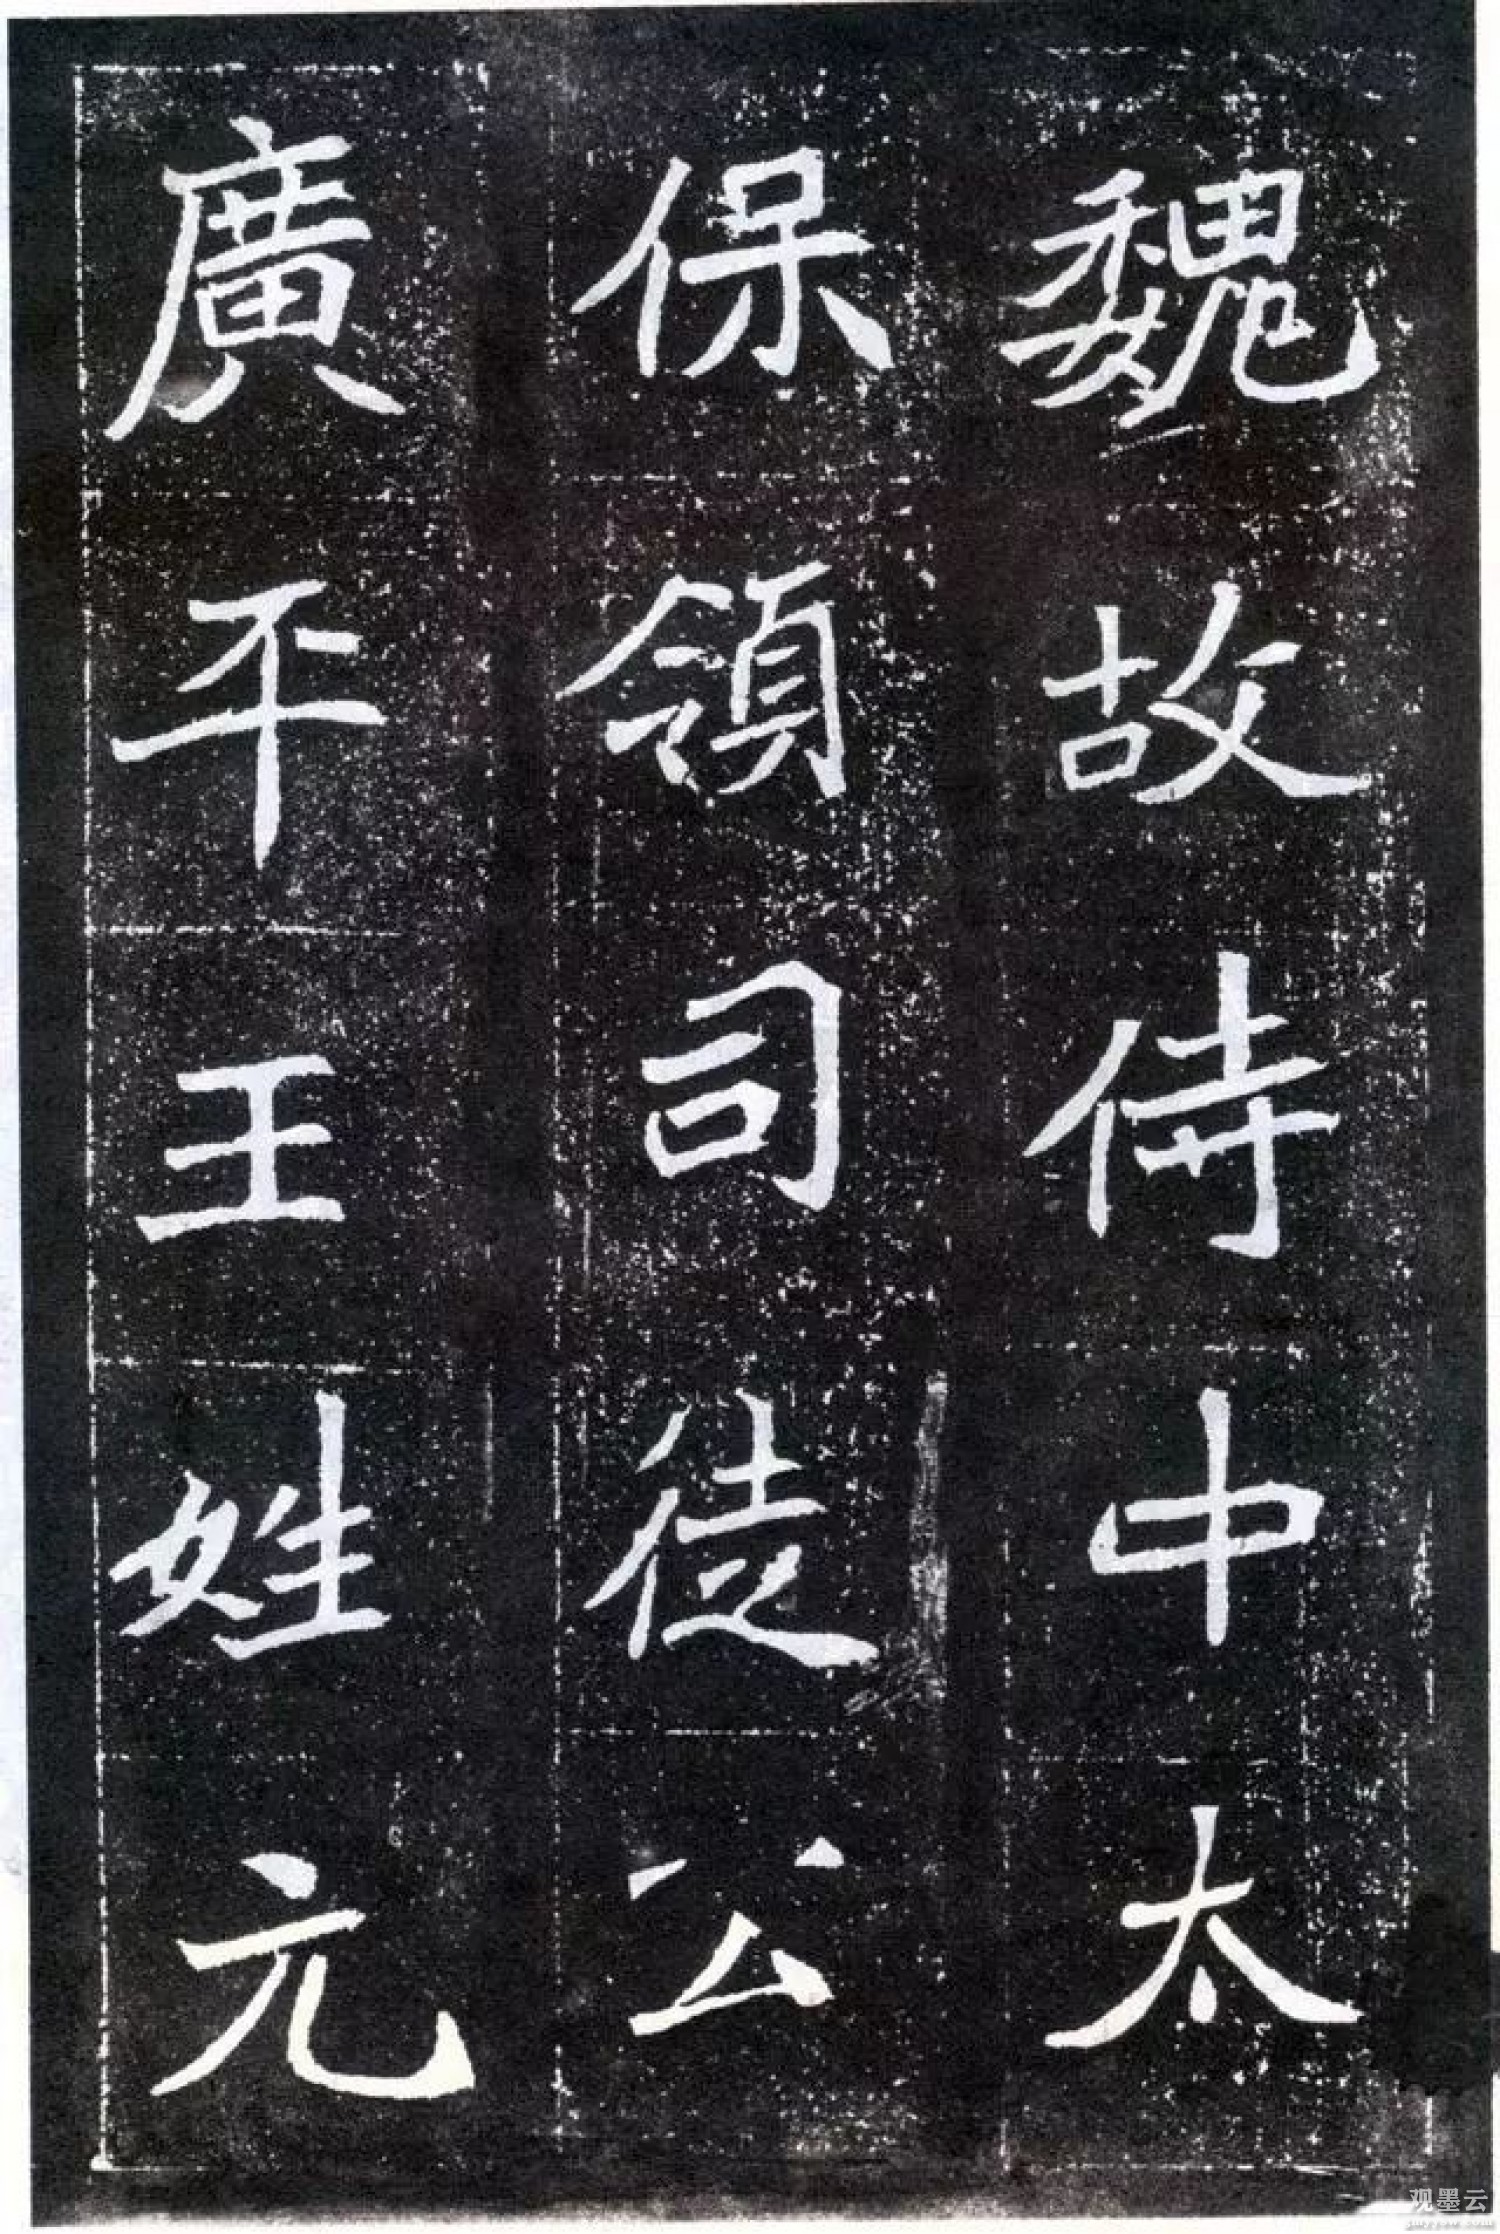 魏故侍中太
保領司徒公
廣平王姓元
观墨云